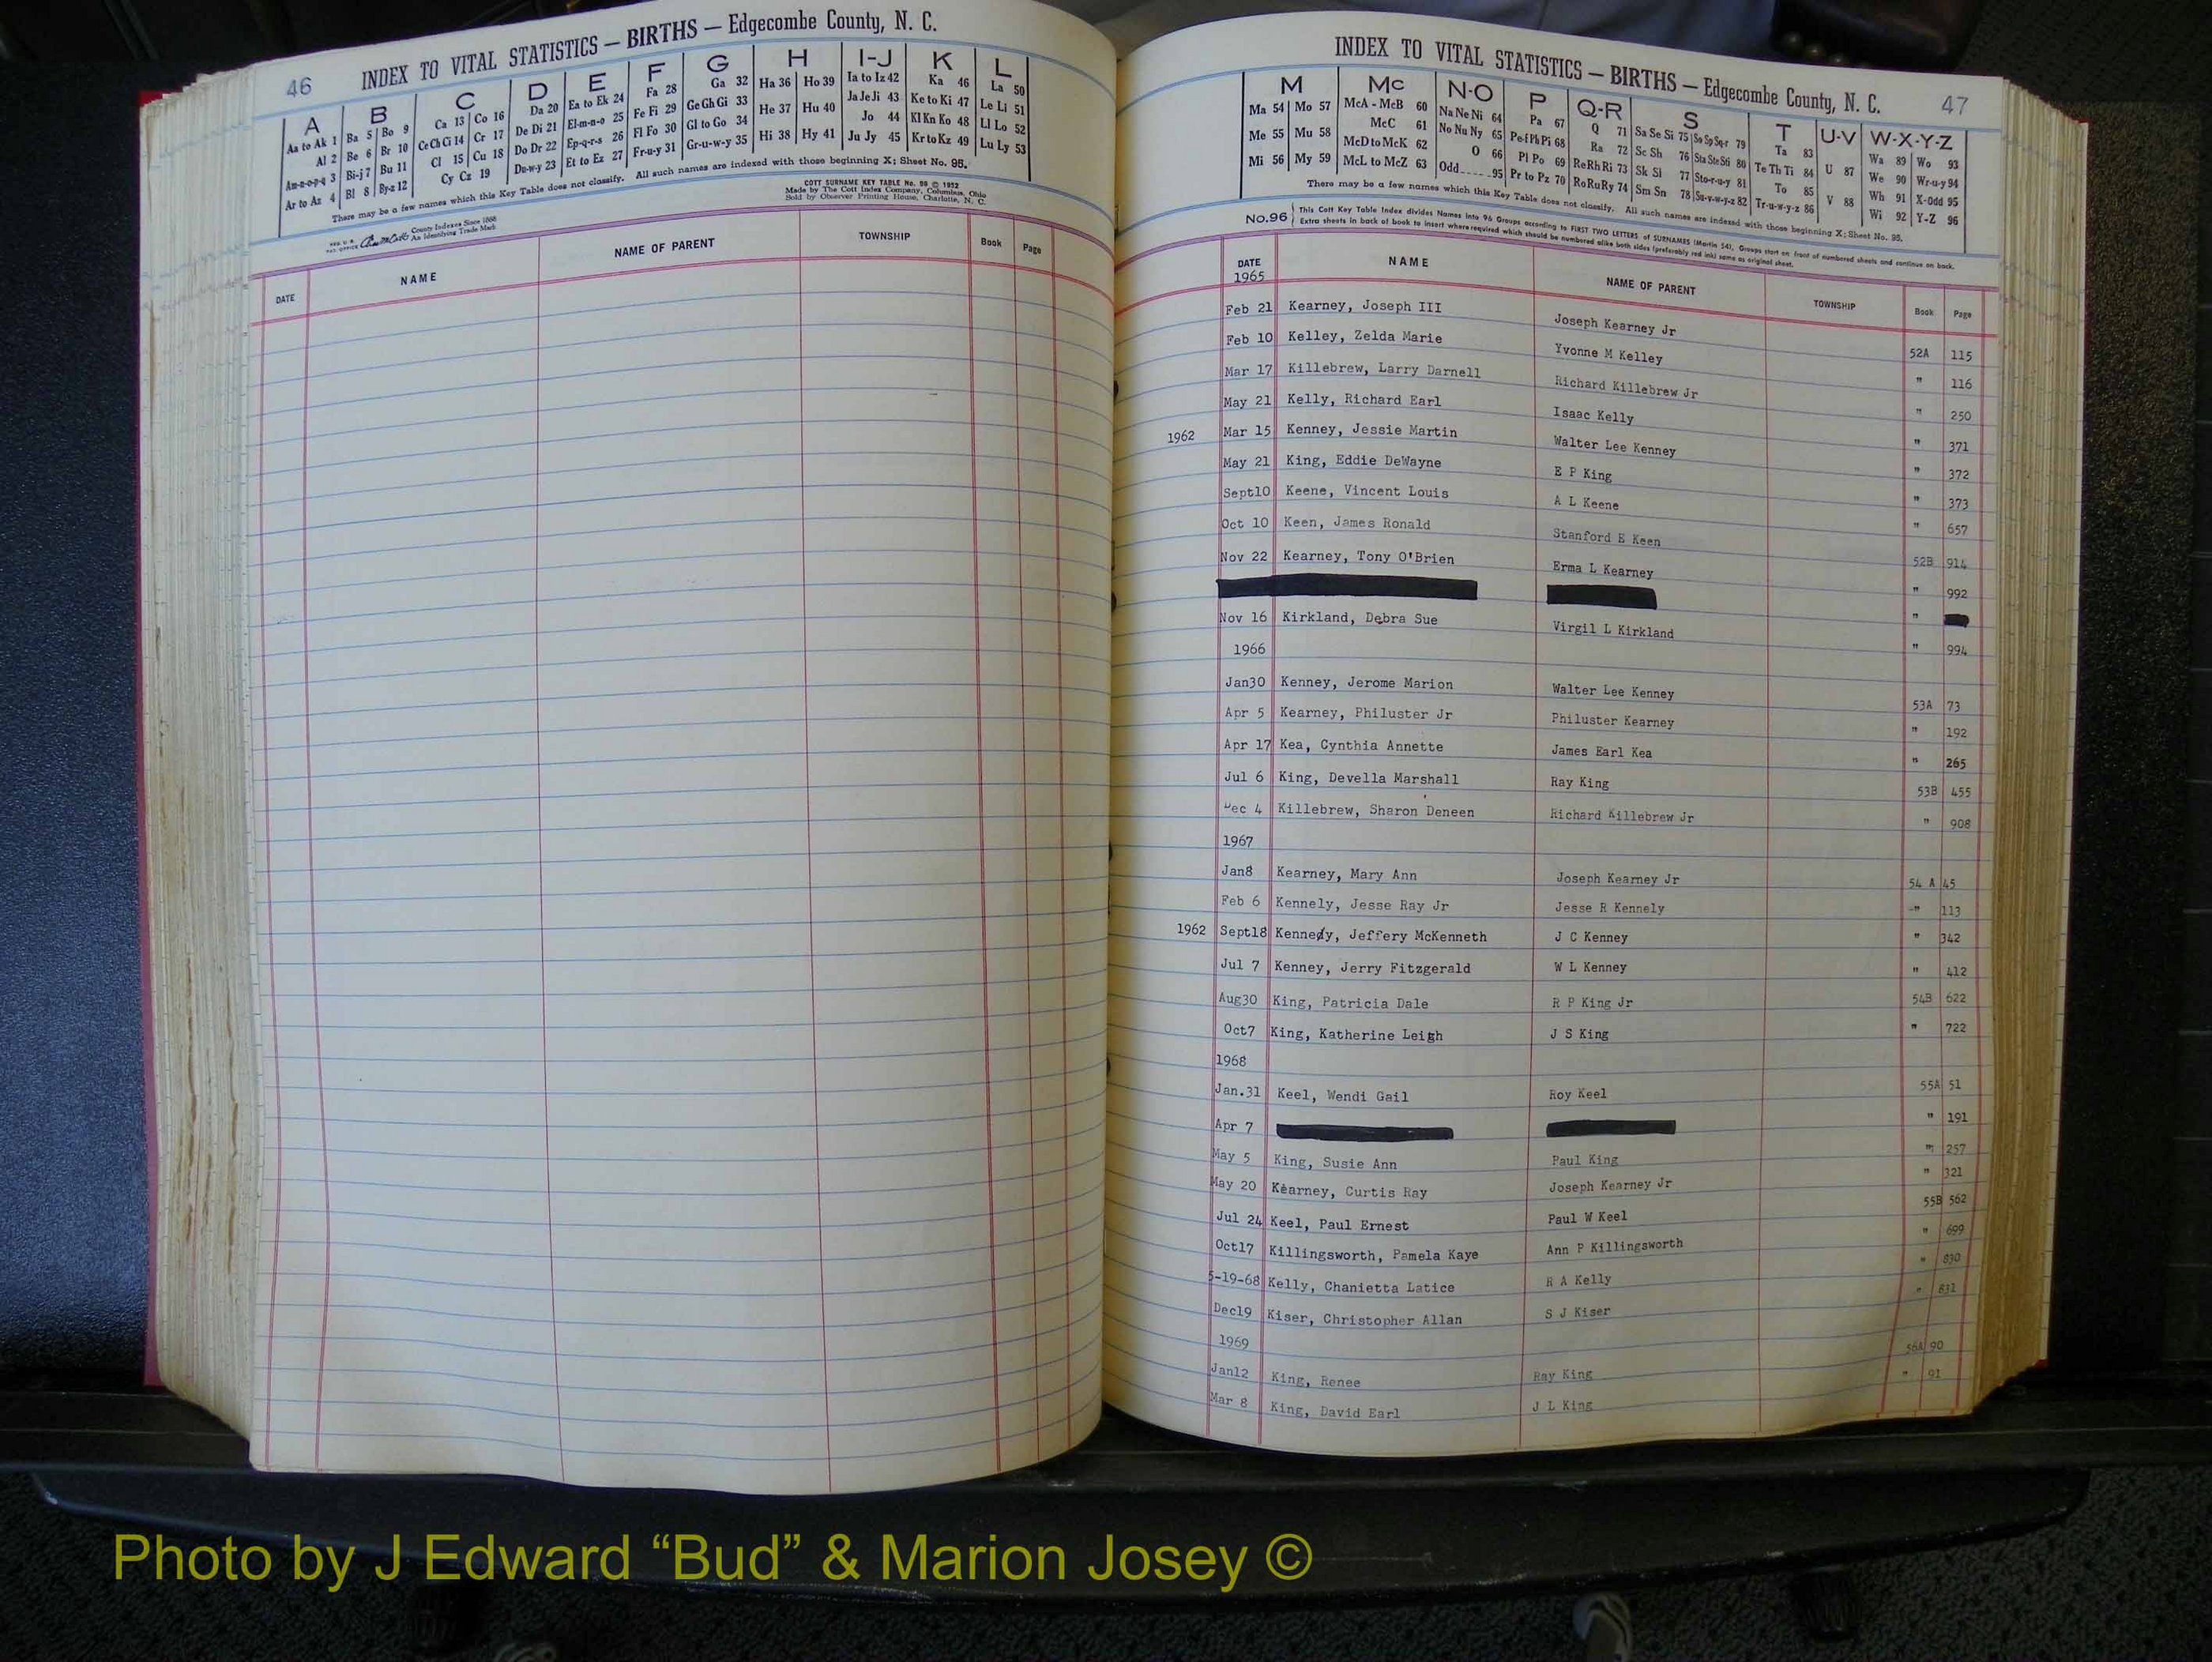 46 INDEX TO VITAL STATISTICS — BIRTHS — Edgecombe County, N. C.
A B C D E F G H I-J K L
Aa to Ak 1 Ba 5 Bo 9 Ca 13 Co 16 Da 20 Ea to Ek 24 Fa 28 Ga 32 Ha 36 Ho 39 Ia to Iz 42 Ka 46 La 50
Al 2 Be 6 Br 10 Ce Ch Ci 14 Cr 17 De Di 21 El-m-n-o 25 Fe Fi 29 Ge Gh Gi 33 He 37 Hu 40 Ja Je Ji 43 Ke to Ki 47 Le Li 51
Am-n-o-p-q 3 Bi-j 7 Bu 11 Cl 15 Cu 18 Do Dr 22 Ep-q-r-s 26 Fl Fo 30 Gl to Go 34 Hi 38 Hy 41 Jo 44 Kl Kn Ko 48 Ll Lo 52
Ar to Az 4 Bl 8 By-z 12 Cy Cz 19 Du-w-y 23 Et to Ez 27 Fr-u-y 31 Gr-u-w-y 35 Ju Jy 45 Kr to Kz 49 Lu Ly 53
There may be a few names which this Key Table does not classify. All such names are indexed with those beginning X; Sheet No. 95.
COTT SURNAME KEY TABLE No. 96 © 1952
Made by The Cott Index Company, Columbus, Ohio
Sold by Observer Printing House, Charlotte, N. C.
County Indexes Since 1888
An Identifying Trade Mark
DATE NAME NAME OF PARENT TOWNSHIP Book Page
INDEX TO VITAL STATISTICS — BIRTHS — Edgecombe County, N. C. 47
M Mc N-O P Q-R S T U-V W-X-Y-Z
Ma 54 Mo 57 McA - McB 60 Na Ne Ni 64 Pa 67 Q 71 Sa Se Si 75 So Sp Sq-r 79 Ta 83 U 87 Wa 89 Wo 93
Me 55 Mu 58 McC 61 No Nu Ny 65 Pe-f Ph Pi 68 Ra 72 Sc Sh 76 Sta Ste Sti 80 Te Th Ti 84 V 88 We 90 Wr-u-y 94
Mi 56 My 59 McD to McK 62 O 66 Pl Po 69 Re Rh Ri 73 Sk Sl 77 Sto-r-u-y 81 To 85 Wh 91 X-Odd 95
McL to McZ 63 Odd 95 Pr to Pz 70 Ro Ru Ry 74 Sm Sn 78 Su-v-w-y-z 82 Tr-u-w-y-z 86 Wi 92 Y-Z 96
There may be a few names which this Key Table does not classify. All such names are indexed with those beginning X; Sheet No. 95.
No.96 This Cott Key Table Index divides Names into 96 Groups according to FIRST TWO LETTERS of SURNAMES (Martin 54). Groups start on front of numbered sheets and continue on back.
Extra sheets in back of book to insert where required which should be numbered alike both sides (preferably red ink) same as original sheet.
DATE NAME NAME OF PARENT TOWNSHIP Book Page
1965
Feb 21 Kearney, Joseph III Joseph Kearney Jr 52A 115
Feb 10 Kelley, Zelda Marie Yvonne M Kelley " 116
Mar 17 Killebrew, Larry Darnell Richard Killebrew Jr " 250
May 21 Kelly, Richard Earl Isaac Kelly " 371
1962 Mar 15 Kenney, Jessie Martin Walter Lee Kenney " 372
May 21 King, Eddie DeWayne E P King " 373
Sept10 Keene, Vincent Louis A L Keene " 657
Oct 10 Keen, James Ronald Stanford E Keen 52B 914
Nov 22 Kearney, Tony O'Brien Erma L Kearney " 992
"
Nov 16 Kirkland, Debra Sue Virgil L Kirkland " 994
1966
Jan30 Kenney, Jerome Marion Walter Lee Kenney 53A 73
Apr 5 Kearney, Philuster Jr Philuster Kearney " 192
Apr 17 Kea, Cynthia Annette James Earl Kea " 265
Jul 6 King, Devella Marshall Ray King 53B 455
Dec 4 Killebrew, Sharon Deneen Richard Killebrew Jr " 908
1967
Jan8 Kearney, Mary Ann Joseph Kearney Jr 54 A 45
Feb 6 Kennely, Jesse Ray Jr Jesse R Kennely " 113
1962 Sept18 Kennedy, Jeffery McKenneth J C Kenney " 342
Jul 7 Kenney, Jerry Fitzgerald W L Kenney " 412
Aug30 King, Patricia Dale R P King Jr 54B 622
Oct7 King, Katherine Leigh J S King " 722
1968
Jan.31 Keel, Wendi Gail Roy Keel 55A 51
Apr 7 " 191
May 5 King, Susie Ann Paul King " 257
May 20 Kearney, Curtis Ray Joseph Kearney Jr " 321
Jul 24 Keel, Paul Ernest Paul W Keel 55B 562
Oct17 Killingsworth, Pamela Kaye Ann P Killingsworth " 699
5-19-68 Kelly, Chanietta Latice R A Kelly " 830
Dec19 Kiser, Christopher Allan S J Kiser " 831
1969
Jan12 King, Renee Ray King 56A 90
Mar 8 King, David Earl J L King " 91
Photo by J Edward “Bud” & Marion Josey ©